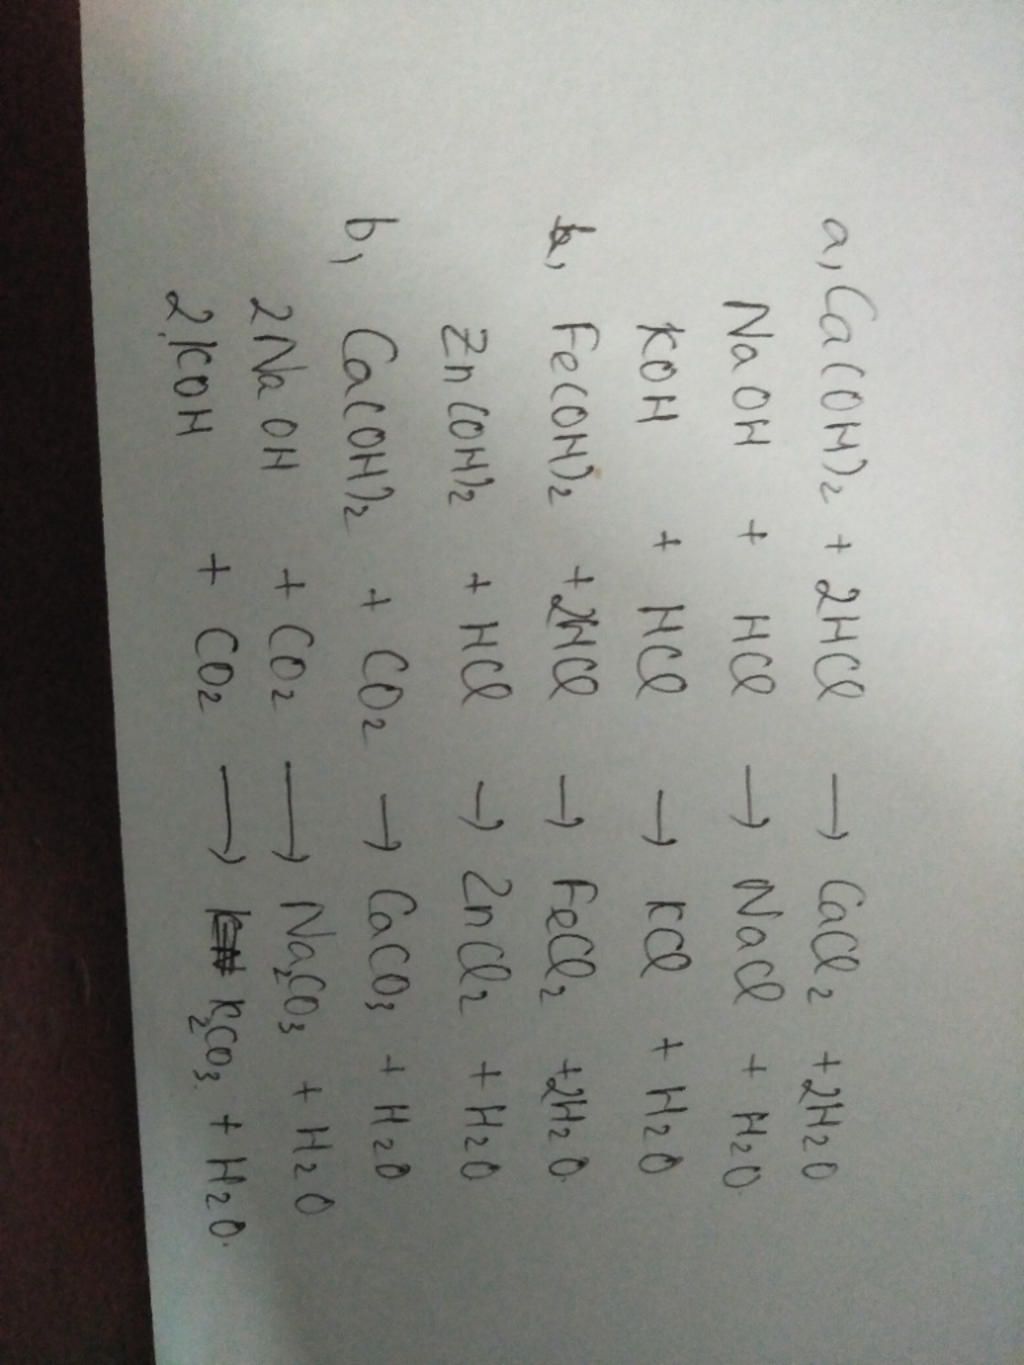 a, Ca(OH)2 + 2HCl → CaCl2 + 2H2O
NaOH + HCl → NaCl + H2O
KOH + HCl → KCl + H2O
Fe(OH)2 + 2HCl → FeCl2 + 2H2O
Zn(OH)2 + HCl → ZnCl2 + H2O
b, Ca(OH)2 + CO2 → CaCO3 + H2O
2NaOH + CO2 → Na2CO3 + H2O
2KOH + CO2 → K2CO3 + H2O.